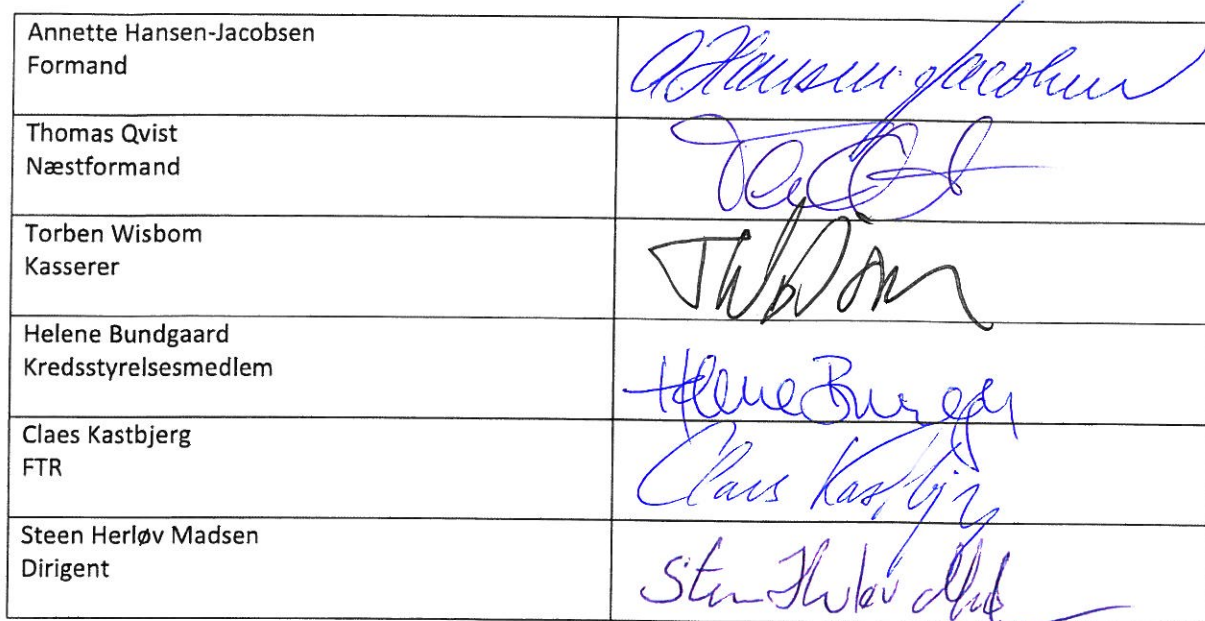 Annette Hansen-Jacobsen
Formand
A Hansen-Jacobsen
Thomas Qvist
Næstformand
Torben Wisbom
Kasserer
Helene Bundgaard
Kredsstyrelsesmedlem
Helene
Claes Kastbjerg
FTR
Claes Kastbjerg
Steen Herløv Madsen
Dirigent